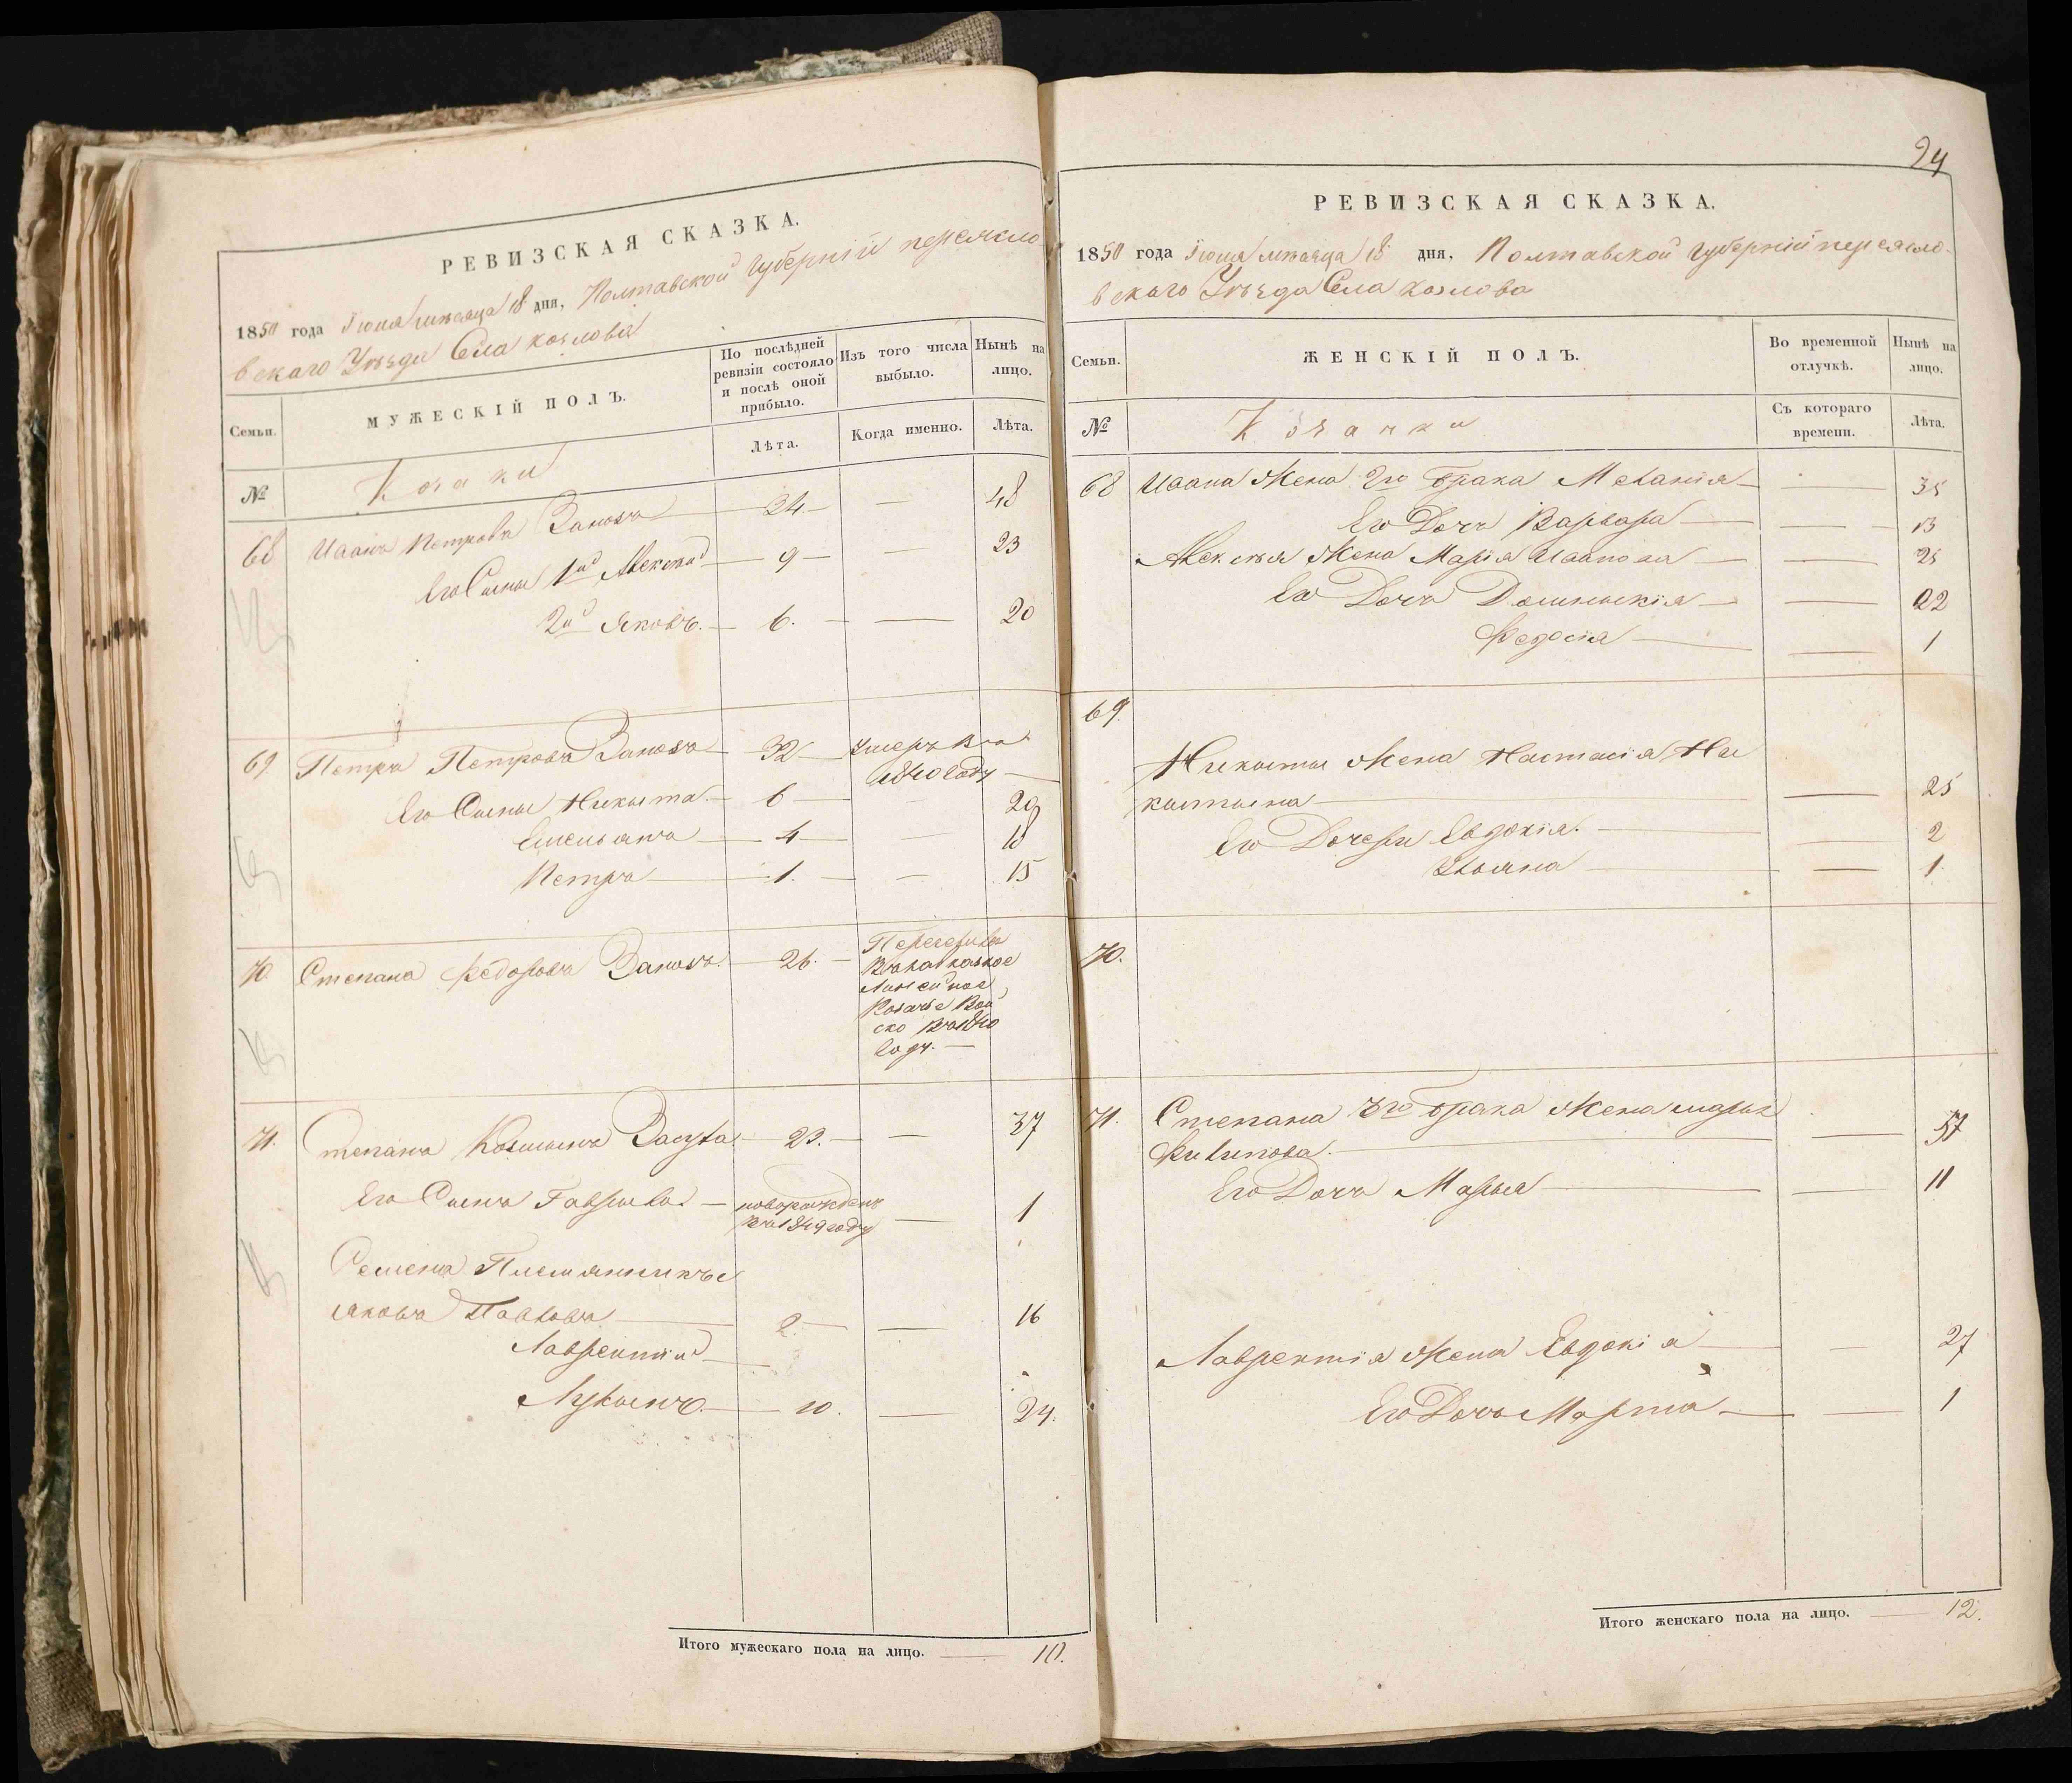 РЕВИЗСКАЯ СКАЗКА.
1850 года Іюня мѣсяца 18 дня, Полтавской Губерніи переясло
вскаго Уѣзда Села козлова
Семьи.
МУЖЕСКІЙ ПОЛЪ.
По послѣдней ревизіи состояло и послѣ оной прибыло.
Изъ того числа выбыло.
Нынѣ на лицо.
Лѣта.
Когда именно.
Лѣта.
№
Козаки
68 Иванъ Петровъ 24 — 48
Его Сыны 1й Алексѣй 9 — 23
2й Яковъ. 6. — 20
69 Петръ Петровъ 32 умеръ въ
1840 году
Его Сыны Никита 6 20
Емельянъ 4 — 18
Петръ 1. — 15
70 Степанъ Федоровъ 26. Перечисленъ
въ кавказкое
Линейное
Козачье Вой
ско въ 1840
году.
71. Степанъ Козминъ 23. — 37
Его Сынъ Гаврыло новорожденъ
въ 1849 году — 1
Семена Племянники
Яковъ Павловъ 2. — 16
Лаврентій
Лукьянъ. 10. — 24.
Итого мужескаго пола на лицо. 10.
24
РЕВИЗСКАЯ СКАЗКА.
1850 года Іюня мѣсяца 18 дня, Полтавской Губерніи переясло-
вскаго Уѣзда Села козлова
Семьи.
ЖЕНСКІЙ ПОЛЪ.
Во временной отлучкѣ.
Нынѣ на лицо.
№
Козачки
Съ котораго времени.
Лѣта.
68 Ивана Жена 2го брака Меланія — 35
Его Дочь Варвара — 13
Алексѣя Жена Марія Иванова — 25
Его Дочь Домникія — 22
Федосія — 1
69.
Никиты Жена Настасія Ни
китина — 25
Его Дочери Евдокія. — 2
Ульяна — 1.
70.
71. Степана брака Жена марья
Филипова. — 57
Его Дочь Марья — 11
Лаврентія Жена Евдокія — 27
Его Дочь Марта — 1
Итого женскаго пола на лицо. 12.